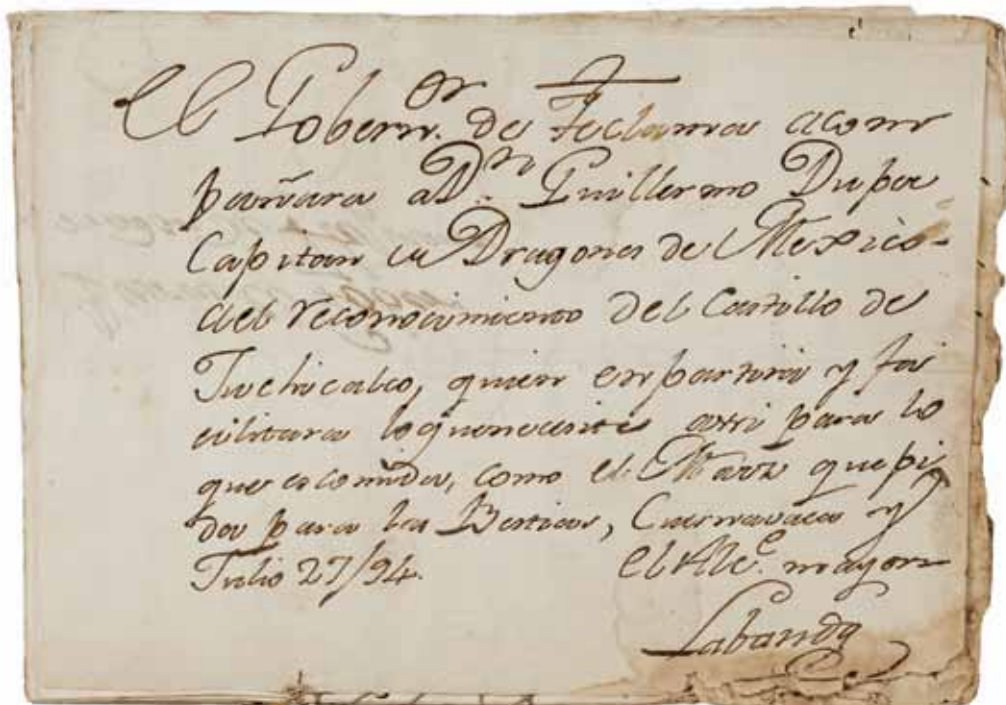 El Gobern.or de Teclama acom
pañara a D.n Guillermo Dupa
Capitan de Dragones de Mexico
del reconocimiento del Castillo de
Suchicalco, quien y fa
cilitara loquenecesite asi para lo
que es comida, como el Maiz que pi
da para las Bestias, Cuernavaca y
Julio 27/94. El Alc.e mayor
Labanda